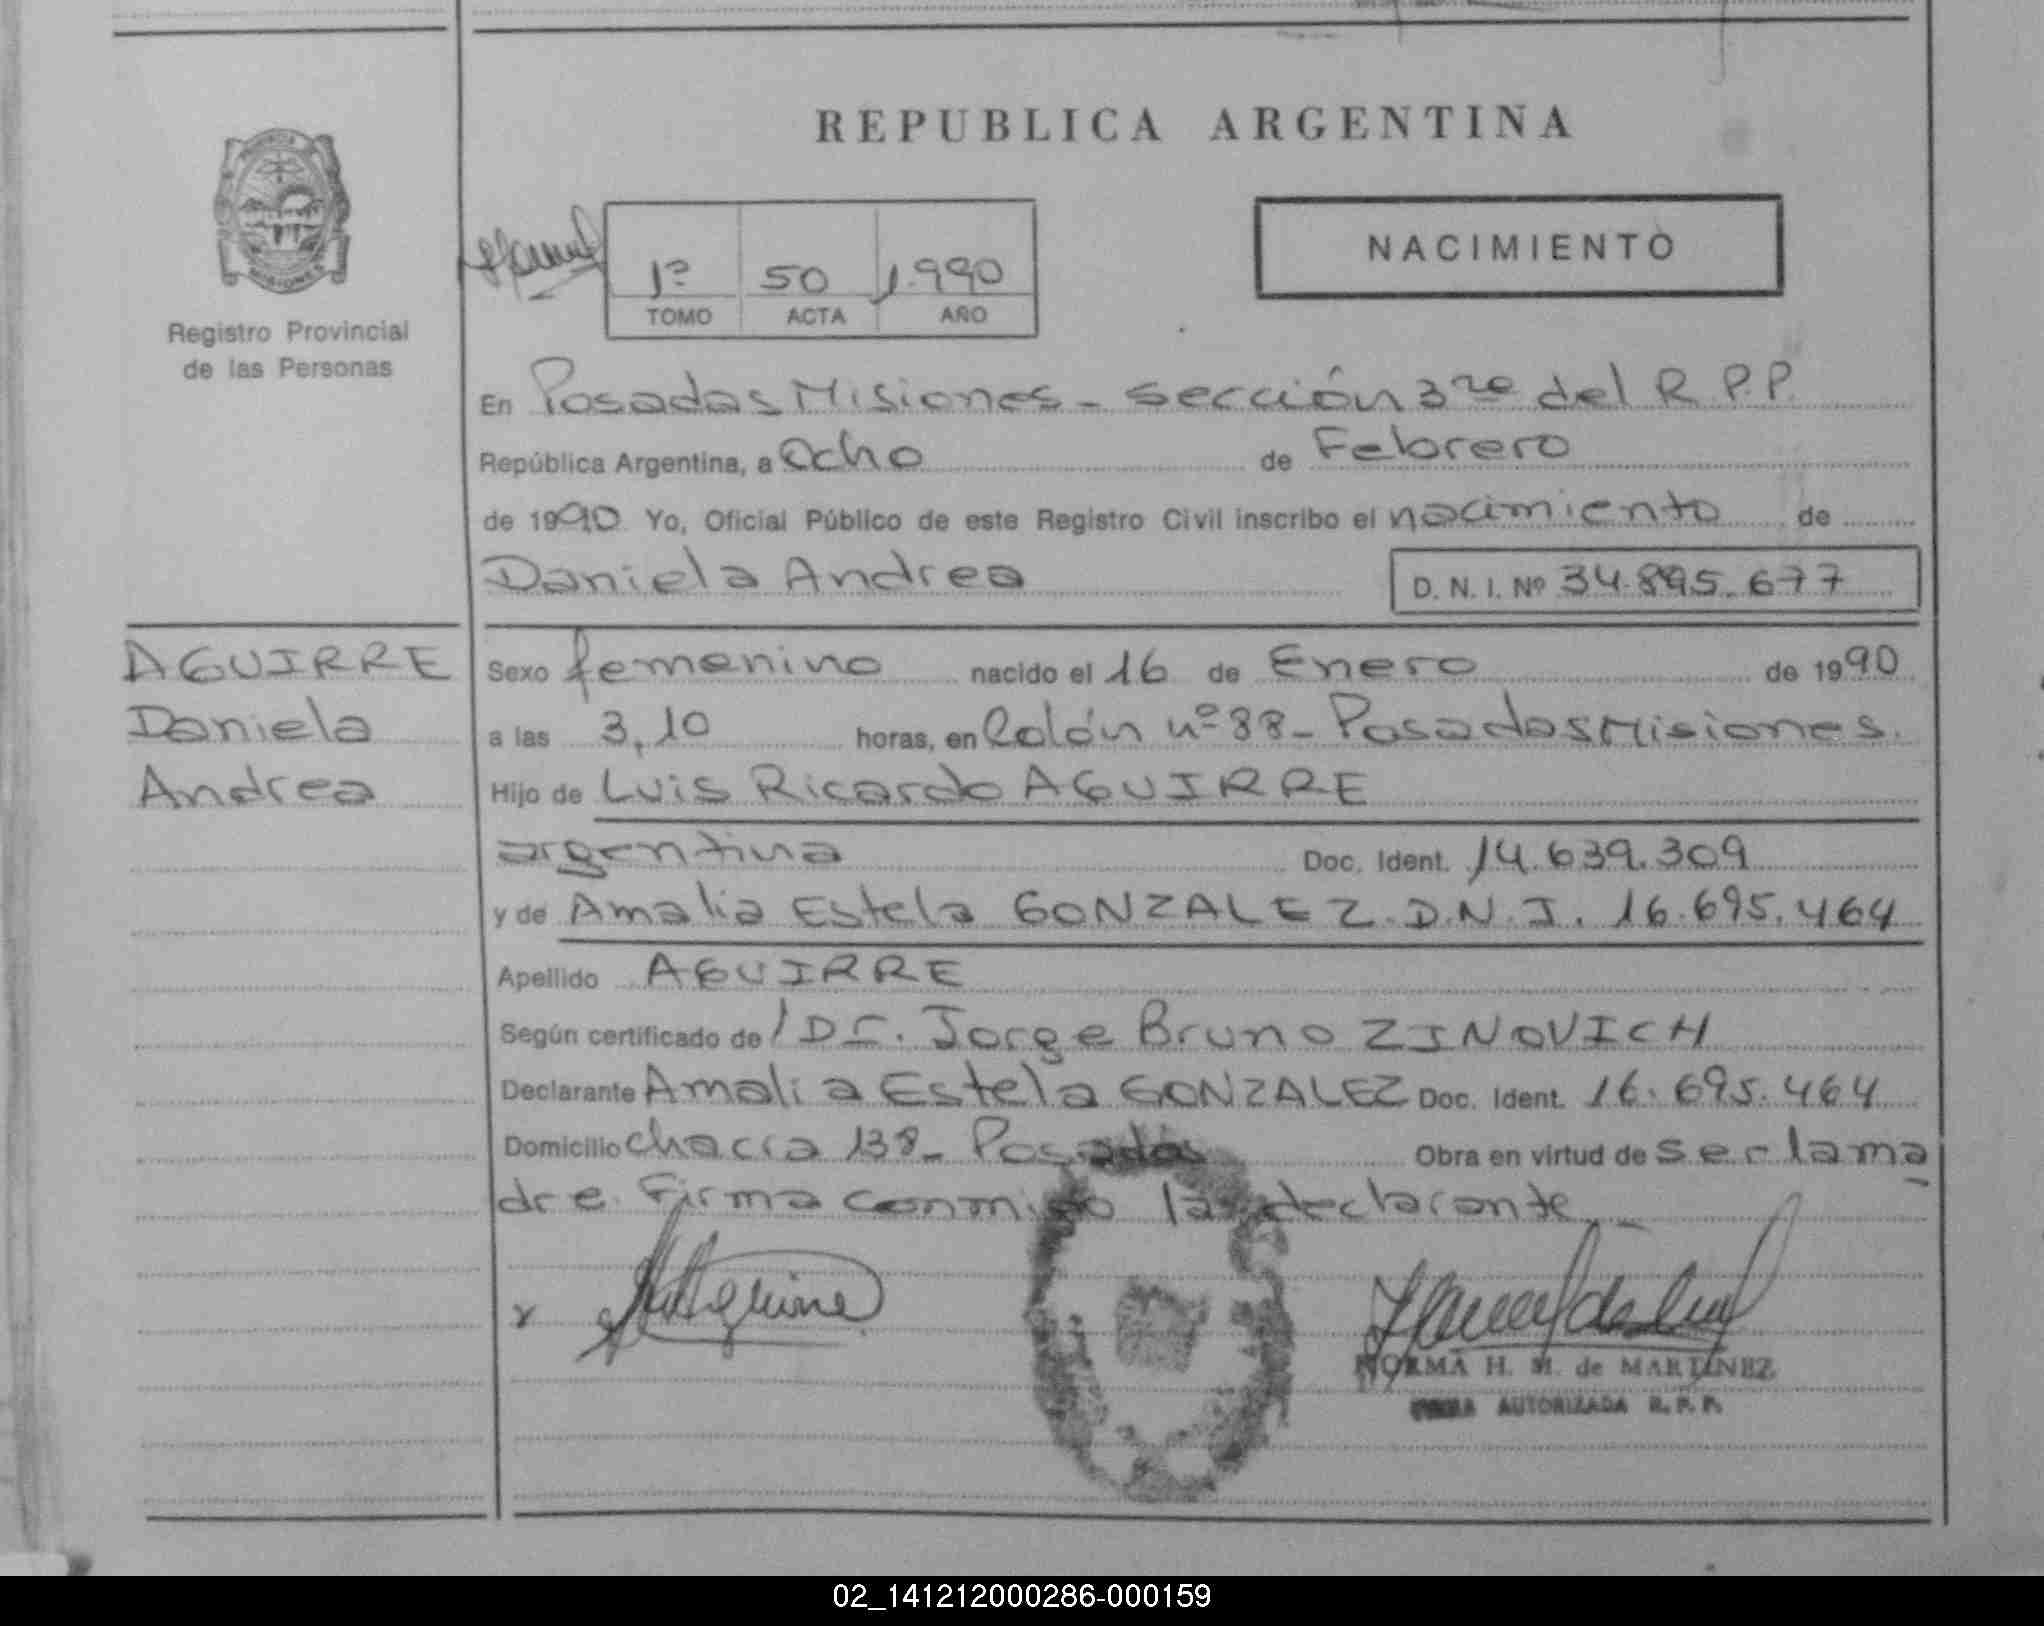 REPUBLICA ARGENTINA
PROVINCIA
MISIONES
Registro Provincial
de las Personas
1º 50 1.990
TOMO ACTA AÑO
NACIMIENTO
En Posadas Misiones - sección 3ra del R.P.P.
República Argentina, a Ocho de Febrero
de 1990 Yo, Oficial Público de este Registro Civil inscribo el nacimiento de
Daniela Andrea D. N. I. Nº 34.895.677
AGUIRRE
Daniela
Andrea
Sexo femenino nacido el 16 de Enero de 1990
a las 3,10 horas, en Colón nº 88 - Posadas Misiones.
Hijo de Luis Ricardo AGUIRRE
argentina Doc. Ident. 14.639.309
y de Amalia Estela GONZALEZ. D.N.I. 16.695.464
Apellido AGUIRRE
Según certificado de / Dr. Jorge Bruno ZINOVICH
Declarante Amalia Estela GONZALEZ Doc. Ident. 16.695.464
Domicilio chacra 138 - Posadas Obra en virtud de ser la ma
dre. Firma conmigo la declarante
x
NORMA H. M. de MARTINEZ
FIRMA AUTORIZADA R. P. P.
02_141212000286-000159